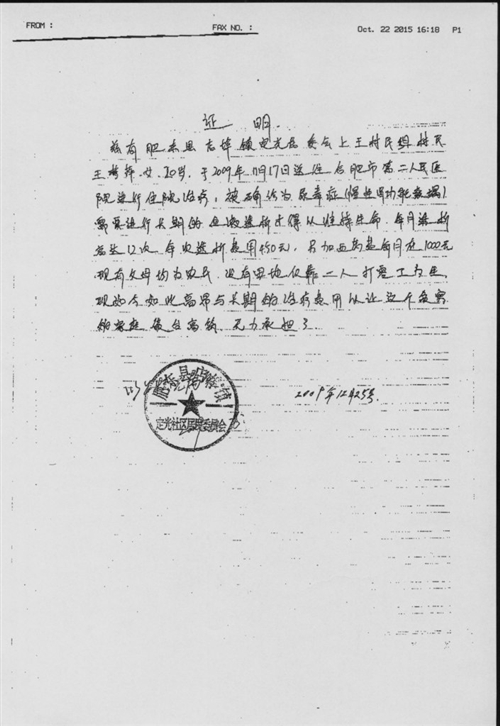 FROM : FAX NO. : Oct. 22 2015 16:18 P1
证 明
兹有肥东县 镇定光居委会上王村民组村民
王 女，20岁，于2009年11月17日送往合肥市第二人民医
院进行住院治疗，被确诊为尿毒症（慢性肾功能衰竭）
需要进行长期的血液透析才得以维持生命，每月透析
12次，每次透析费用450元，另加西药费每月在1000元
现有父母均为农民，没有田地，仅靠二人打零工为生
现如今如此高昂与长期的治疗费用 让这个贫穷
的家庭 无力承担了
定光社区居民委员会
2009年12月25号